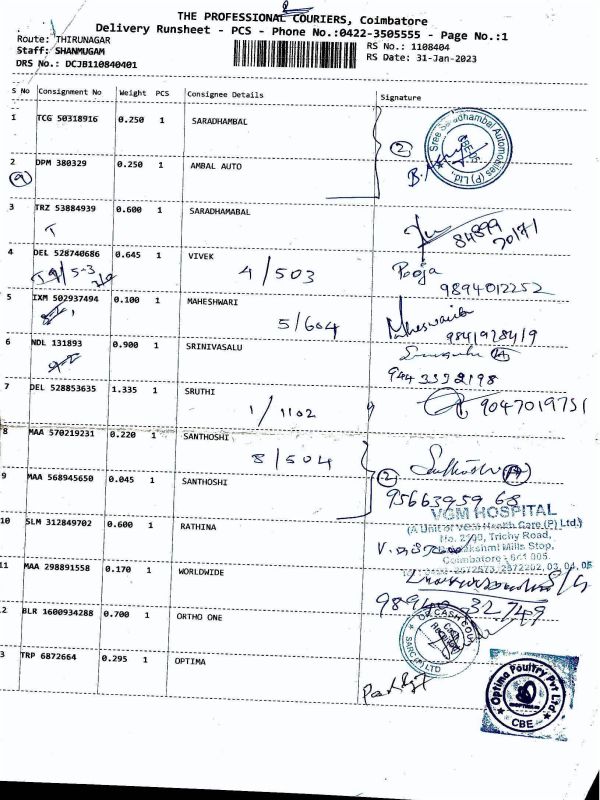 THE PROFESSIONAL COURIERS, Coimbatore
Delivery Runsheet - PCS - Phone No.:0422-3505555 - Page No.:1
Route: THIRUNAGAR
Staff: SHANMUGAM
DRS No.: DCJB110840401
RS No.: 1108404
RS Date: 31-Jan-2023
S No Consignment No Weight PCS Consignee Details Signature
1 TCG 50318916 0.250 1 SARADHAMBAL
2
Sree Saradhambal Automobiles (P) Ltd.,
2 DPM 380329 0.250 1 AMBAL AUTO
3 TRZ 53884939 0.600 1 SARADHAMABAL
84899
20171
4 DEL 528740686 0.645 1 VIVEK
4/503
Pooja
9894012252
5 IXM 502937494 0.100 1 MAHESHWARI
5/604
Maheswari
9841928419
6 NDL 131893 0.900 1 SRINIVASALU
944 3392198
7 DEL 528853635 1.335 1 SRUTHI
1/1102
9047019751
8 MAA 570219231 0.220 1 SANTHOSHI
8/504
2
9 MAA 568945650 0.045 1 SANTHOSHI
95663959 68
10 SLM 312849702 0.600 1 RATHINA
VGM HOSPITAL
(A Unit of VGM Health Care (P) Ltd.)
No. 2100, Trichy Road,
Mills Stop,
Coimbatore - 641 005.
2572573, 2572202, 03, 04, 05
11 MAA 298891558 0.170 1 WORLDWIDE
98940 32749
2 BLR 1600934288 0.700 1 ORTHO ONE
SARC (P) LTD
3 TRP 6872664 0.295 1 OPTIMA
Optima Poultry Pvt Ltd
CBE